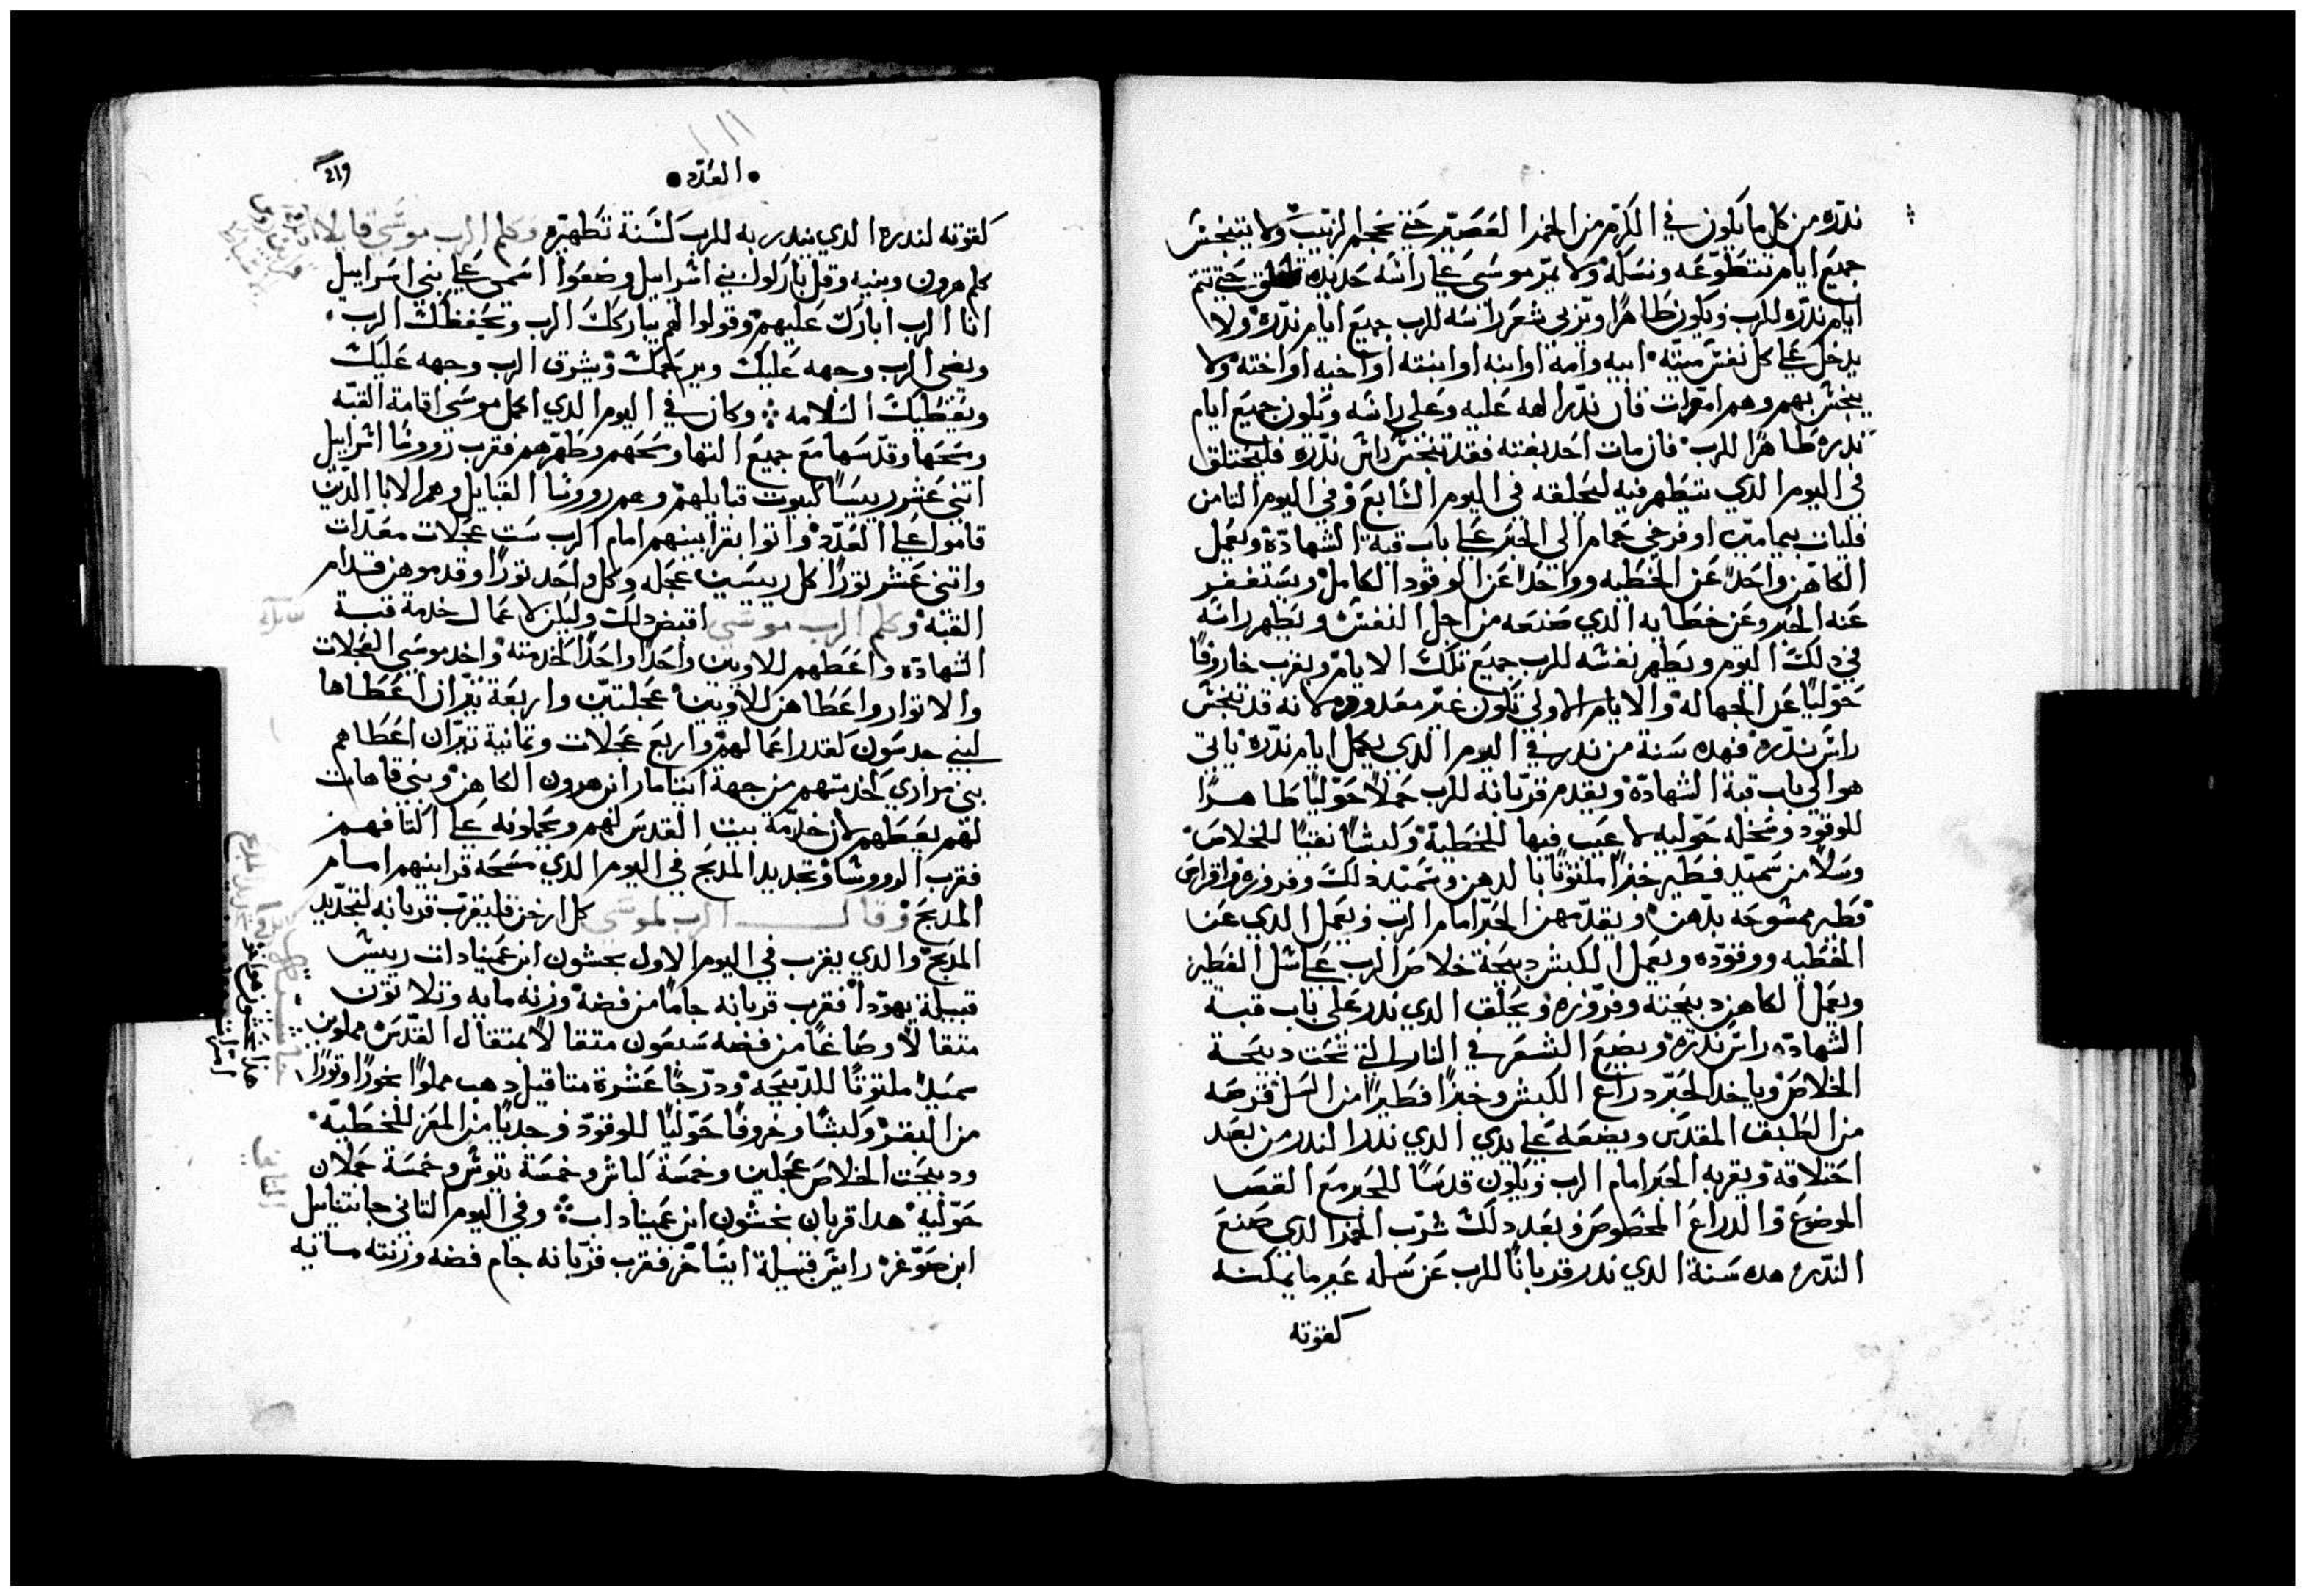 ندره من كل ما يكون في الكرم من الخمر العصير حتي عجم الزبيب ولا يتنجس
جميع ايام تتطوعه ونسكه ولا يمر موسي علي راسه حديده حتي تتم
ايام ندره للرب ويكون طاهرًا ويربي شعر راسه للرب جميع ايام ندره ولا
يدخل علي كل نفس ميته ابيه وامه او ابنه او ابنته او اخيه او اخته ولا
يتنجس بهم وهم اموات فان ندر الهه عليه وعلي راسه ويكون جميع ايام
ندره طاهرًا للرب فان مات احد بغته فقد تنجس راس ندره فليحتلق
في اليوم الدي يتطهر فيه ليحلقه في اليوم السابع وفي اليوم التامن
فليات بيمامتين او فرخي حمام الي الحبر علي باب قبة الشهادة ويعمل
الكاهن واحدًا عن الخطيه وواحدًا عن الوقود الكامل ويستغفر
عنه الحبر وعن خطايه الدي صنعه من اجل النفس ويطهر راسه
في دلك اليوم ويطهر نفسه للرب جميع تلك الايام ويقرب خاروفًا
حوليًا عن الجهاله والايام الاولي تكون غير معدوده لانه قد تنجس
راس ندره فهده سنة من ندر في اليوم الدي يكمل ايام ندره ياتي
هو الي باب قبة الشهادة ويقدم قربانه للرب حملاً حوليًا طاهرًا
للوقود ونخله حوليه لا عيب فيها للخطية وكبشًا نقيًا للخلاص
وسلاً من سميد فطير خبزًا ملتوتًا بالدهن وسميد دلك وفروزه واقراص
فطير ممشوحه بدهن ويقدمهن الحبر امام الرب ويعمل الدي عن
الخطيه ووقوده ويعمل الكبش دبيحة خلاص الرب علي سل الفطير
ويعمل الكاهن دبيحته وفروزه ويحلق الدي ندر علي باب قبة
الشهادة راس ندره ويضع الشعر في النار التي تحت دبيحة
الخلاص وياخد الحبر دراع الكبش وخبزًا فطيرًا من السل قرصه
من الطبق المقدس ويضعه علي يدي الدي ندر الندر من بعد
احتلاقه ويقربه الحبر امام الرب ويكون قدسًا للحبر مع القص
الموضوع والدراع المخصوص وبعد دلك شرب الخمر الدي صنع
الندر هده سنة الدي ندر قربانًا للرب عن نسكه غير ما يمكنه
كقوته
العدد
219
كقوته لندره الدي يندر به للرب كسنة تطهيره وكلم الرب موسي قايلا
كلم هرون وبنيه وقل باركوا بني اسرايل وضعوا اسمي علي بني اسراييل
انا الرب ابارك عليهم وقولوا لهم يباركك الرب ويحفظك الرب
ويضي الرب وجهه عليك ويرحمك ويشرق الرب وجهه عليك
ويعطيك السلامه وكان في اليوم الدي اكمل موسي اقامة القبه
ومسحها وقدسها مع جميع التها ومسحهم وطهرهم فقرب رووسا اسراييل
اتني عشر رييسًا لبيوت قبايلهم وهم رووسا القبايل وهم الابا الدين
قاموا علي العدد واتوا بقرابينهم امام الرب ست عجلات معدات
واتني عشر تورًا كل رييسين عجله وكل واحد تورًا وقدموهن قدام
القبه وكلم الرب موسي اقبض دلك وليكن لاعمال خدمة قبة
الشهادة واعطهم للاويين واحدًا واحدًا لخدمته واخد موسي العجلات
والاتوار واعطاهن للاويين عجلتين واربعة تيران اعطاها
لبني جدسون كقدر اعمالهم واربع عجلات وتمانية تيران اعطاهم
بني مراري كخدمتهم من جهة ايتامار ابن هرون الكاهن وبني قاهات
لهم يعطهم لان خدمة بيت القدس لهم ويحملونه علي اكتافهم
فقرب الرووسا وتجديد المدبح في اليوم الدي مسحه قرابينهم امام
المدبح وقال الرب لموسي كل ارخن فليقرب قربانه لتجديد
المدبح والدي يقرب في اليوم الاول نحشون ابن عميناداب رييس
قبيلة يهودا فقرب قربانه جامًا من فضة وزنه مايه وتلاتون
متقالاً وصاعًا من فضه سبعون متقالاً بمتقال القدس مملوين
سميدًا ملتوتًا للدبيحه ودرجًا عشرة متاقيل دهب مملوًا بخورًا وتورًا
من البقر وكبشًا وخروفًا حوليًا للوقود وجديًا من المعز للخطيه
ودبيحت الخلاص عجلين وخمسة كباش وخمسة تيوس وخمسة حملان
حوليه هدا قربان نحشون ابن عميناداب وفي اليوم التاني جا نتناييل
ابن صوغر راس قبيلة ايساخر فقرب قربانه جام فضه وزنته ماية